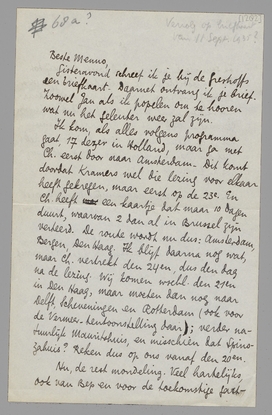 # 68a?
Vervolg op briefkaart
van 11 Sept. 1935?
Beste Menno,
Gisteravond schreef ik je bij de Greshoffs
een briefkaart. Daarnet ontving ik je brief.
Zoowel Jan als ik popelen om te hooren
wat nu het gelenter weer zal zijn.
Ik kom, als alles volgens programma
gaat, 17 dezer in Holland, maar ga met
Ch. eerst door naar Amsterdam. Dit komt
doordat Kramers wel die lezing voor elkaar
heeft gekregen, maar eerst op de 23e. En
Ch. heeft een kaartje dat maar 10 dagen
duurt, waarvan 2 dan al in Brussel zijn
verteerd. De route wordt nu dus: Amsterdam,
Bergen, Den Haag. Ik blijf daarna nog wat,
maar Ch. vertrekt den 24en, dus den dag
na de lezing. Wij komen wschl. den 21en
in Den Haag, maar moeten dan nog naar
Delft, Scheveningen en Rotterdam (ook voor
de Vermeer-tentoonstelling daar); verder na-
tuurlijk Mauritshuis, en misschien dat Spino-
zahuis? Reken dus op ons vanaf den 20en.
Nu, de rest mondeling. Veel hartelijks,
ook van Bep en voor de toekomstige gast-